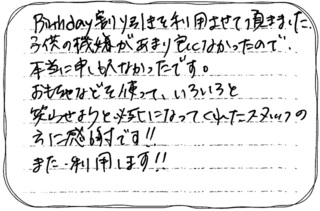 Birthday割り引きを利用させて頂きました。
子供の機嫌があまり良くなかったので、
本当に申し訳なかったです。
おもちゃなどを使って、いろいろと
笑わせようと必死になってくれたスタッフの
方に感謝です!!
また利用します!!